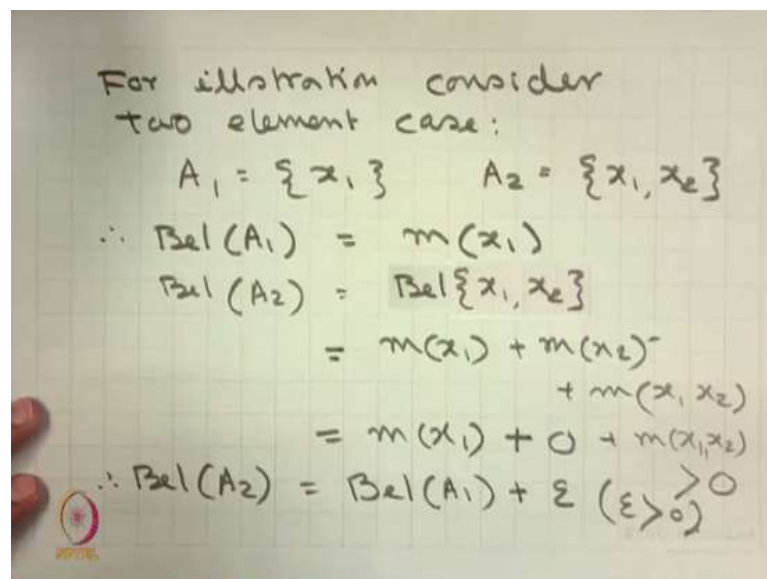 For illstration consider
two element case:
A₁ = {x₁} A₂ = {x₁, x₂}
∴ Bel(A₁) = m(x₁)
Bel(A₂) = Bel{x₁, x₂}
= m(x₁) + m(x₂)
+ m(x₁ x₂)
= m(x₁) + 0 + m(x₁,x₂)
>0
∴ Bel(A₂) = Bel(A₁) + ε (ε>0)
NPTEL